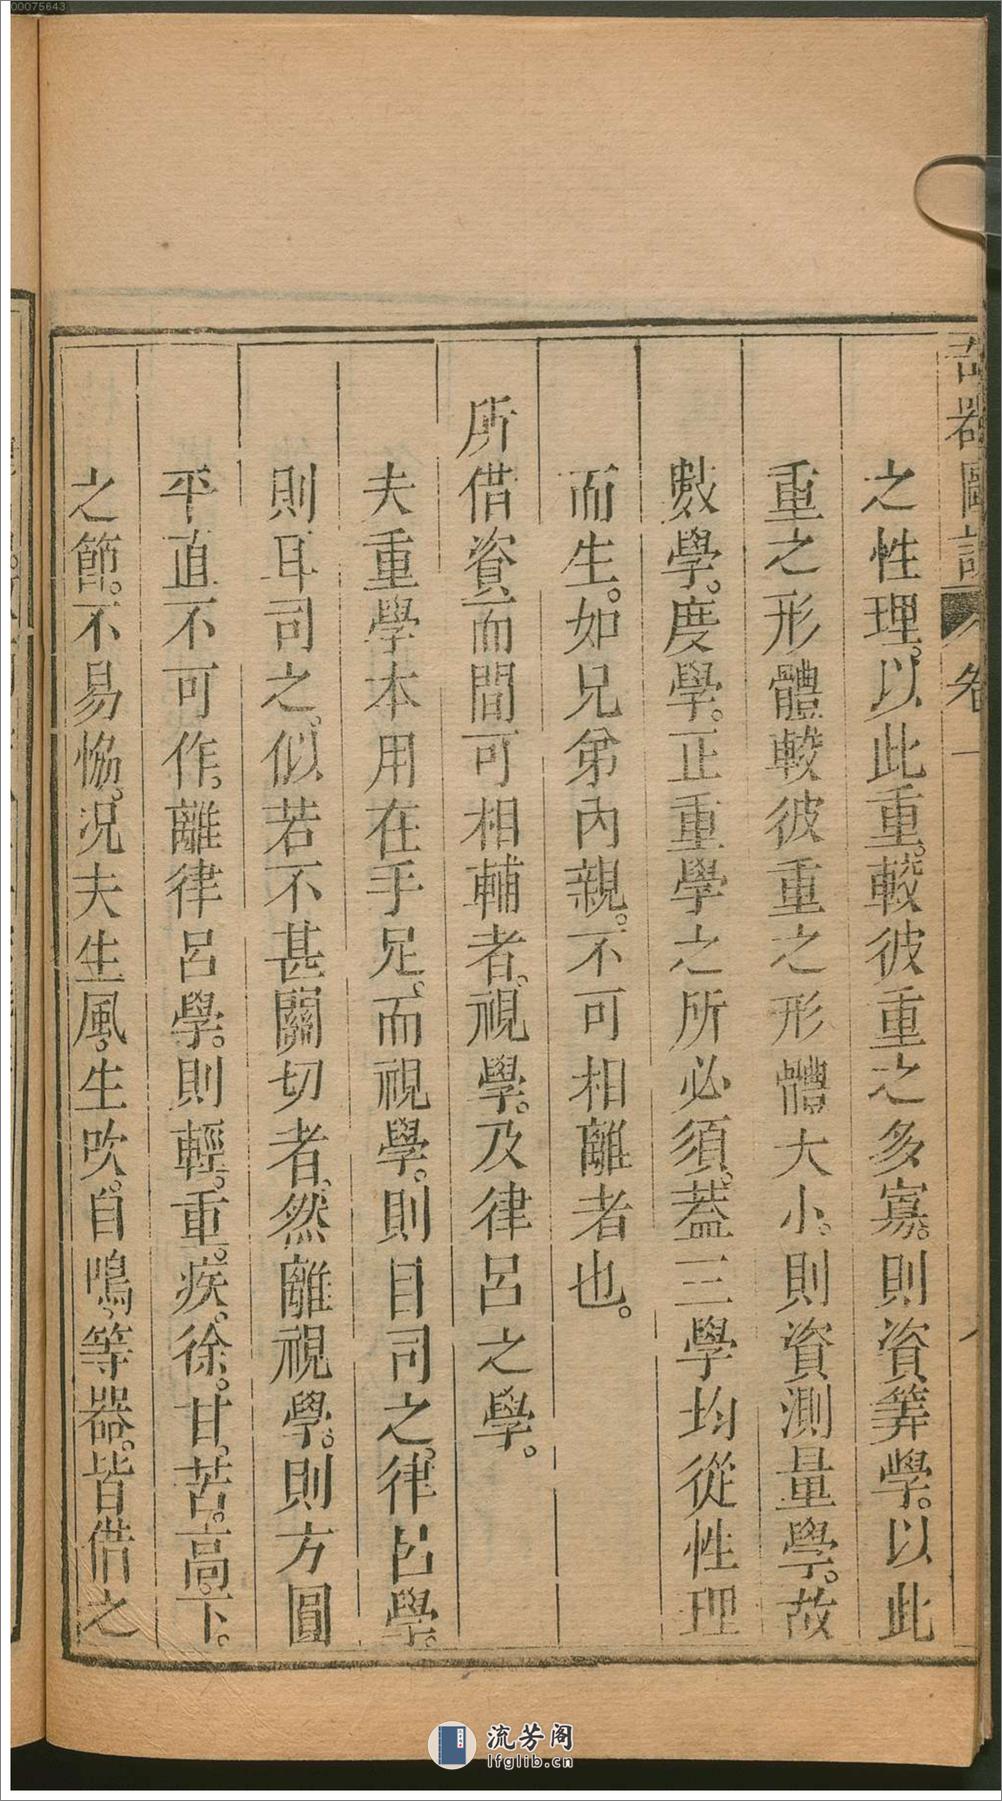 00075643
奇器圖說 卷一 八
之性理。以此重。較彼重之多寡。則資筭學。以此
重之形體較彼重之形體大小。則資測量學。故
數學。度學。正重學之所必須。蓋三學均從性理
而生。如兄弟內親。不可相離者也。
所借資而間可相輔者。視學。及律呂之學。
夫重學本用在手足。而視學。則目司之。律呂學。
則耳司之。似若不甚關切者。然離視學。則方圓
平直不可作。離律呂學。則輕。重。疾。徐。甘。苦。高。下。
之節。不易恊。況夫生風。生吹。自鳴。等器。皆借之
流芳阁
lfglib.cn